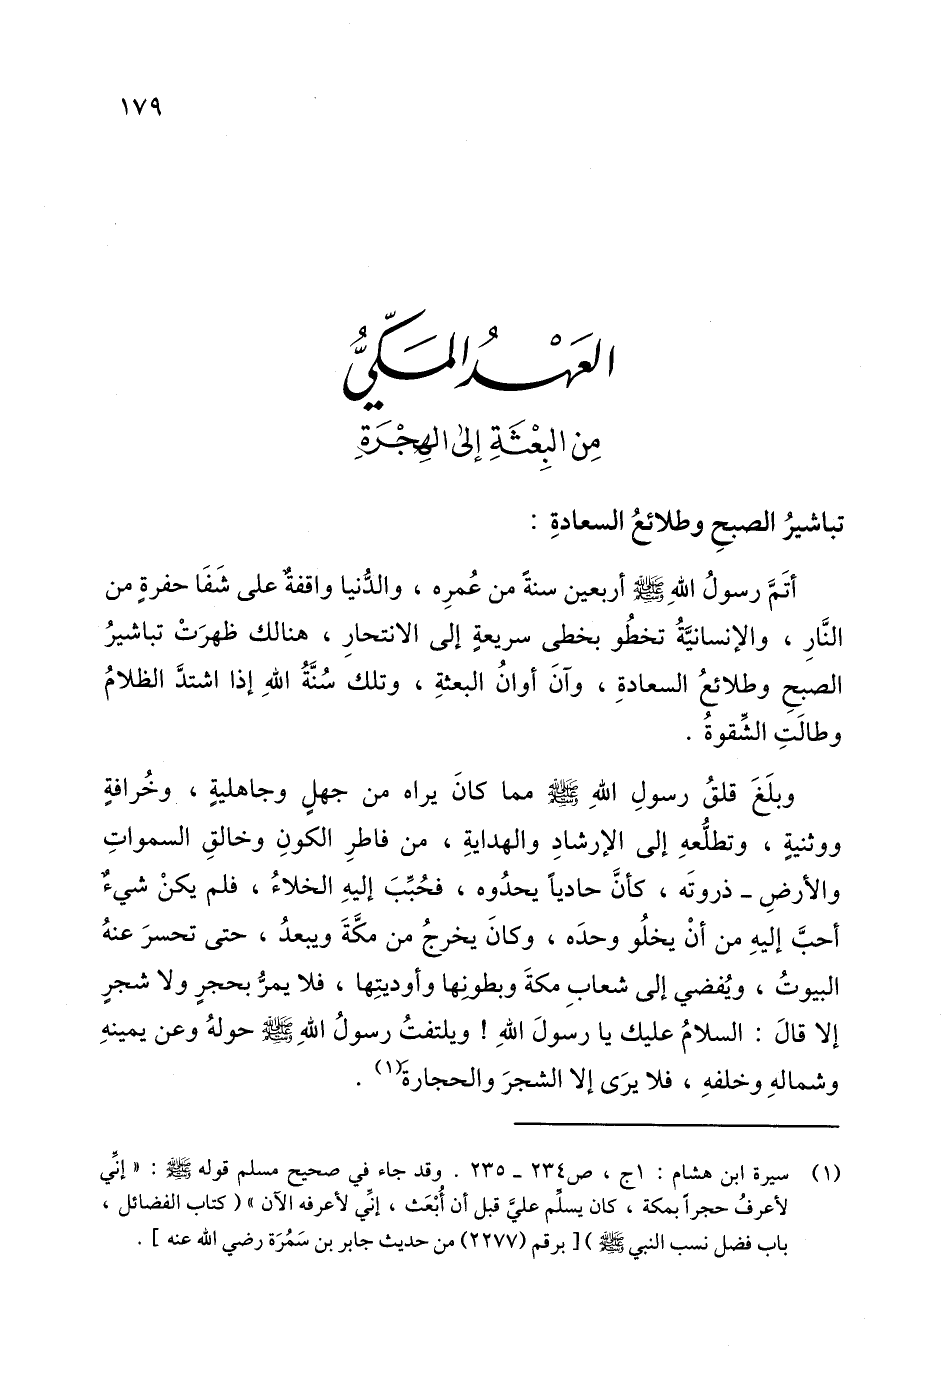 ١٧٩
العَهْدُ المَكِّيُّ
مِنَ البِعْثَةِ إِلىٰ الهِجْرَةِ
تباشيرُ الصبحِ وطلائعُ السعادةِ :
أتَمَّ رسولُ اللهِ ﷺ أربعين سنةً من عُمرِه ، والدُّنيا واقفةٌ على شَفَا حفرةٍ من
النَّارِ ، والإنسانيَّةُ تخطُو بخطى سريعةٍ إلى الانتحارِ ، هنالك ظهرَتْ تباشيرُ
الصبحِ وطلائعُ السعادةِ ، وآنَ أوانُ البعثةِ ، وتلك سُنَّةُ اللهِ إذا اشتدَّ الظلامُ
وطالَتِ الشِّقوةُ .
وبلَغَ قلقُ رسولِ اللهِ ﷺ مما كانَ يراه من جهلٍ وجاهليةٍ ، وخُرافةٍ
ووثنيةٍ ، وتطلُّعهِ إلى الإرشادِ والهدايةِ ، من فاطرِ الكونِ وخالقِ السمواتِ
والأرضِ ـ ذروتَه ، كأنَّ حادياً يحدُوه ، فحُبِّبَ إليهِ الخلاءُ ، فلم يكنْ شيءٌ
أحبَّ إليهِ من أنْ يخلُو وحدَه ، وكانَ يخرجُ من مكَّةَ ويبعدُ ، حتى تحسرَ عنهُ
البيوتُ ، ويُفضي إلى شعابِ مكةَ وبطونِها وأوديتِها ، فلا يمرُّ بحجرٍ ولا شجرٍ
إلا قالَ : السلامُ عليك يا رسولَ اللهِ ! ويلتفتُ رسولُ اللهِ ﷺ حولهُ وعن يمينهِ
وشمالهِ وخلفهِ ، فلا يرَى إلا الشجرَ والحجارةَ(١) .
(١) سيرة ابن هشام : ج١ ، ص٢٣٤ ـ ٢٣٥ . وقد جاء في صحيح مسلم قوله ﷺ : « إنِّي
لأعرفُ حجراً بمكة ، كان يسلِّم عليَّ قبل أن أُبْعَث ، إنِّي لأعرفه الآن » ( كتاب الفضائل ،
باب فضل نسب النبي ﷺ )[ برقم (٢٢٧٧) من حديث جابر بن سَمُرَة رضي الله عنه ] .